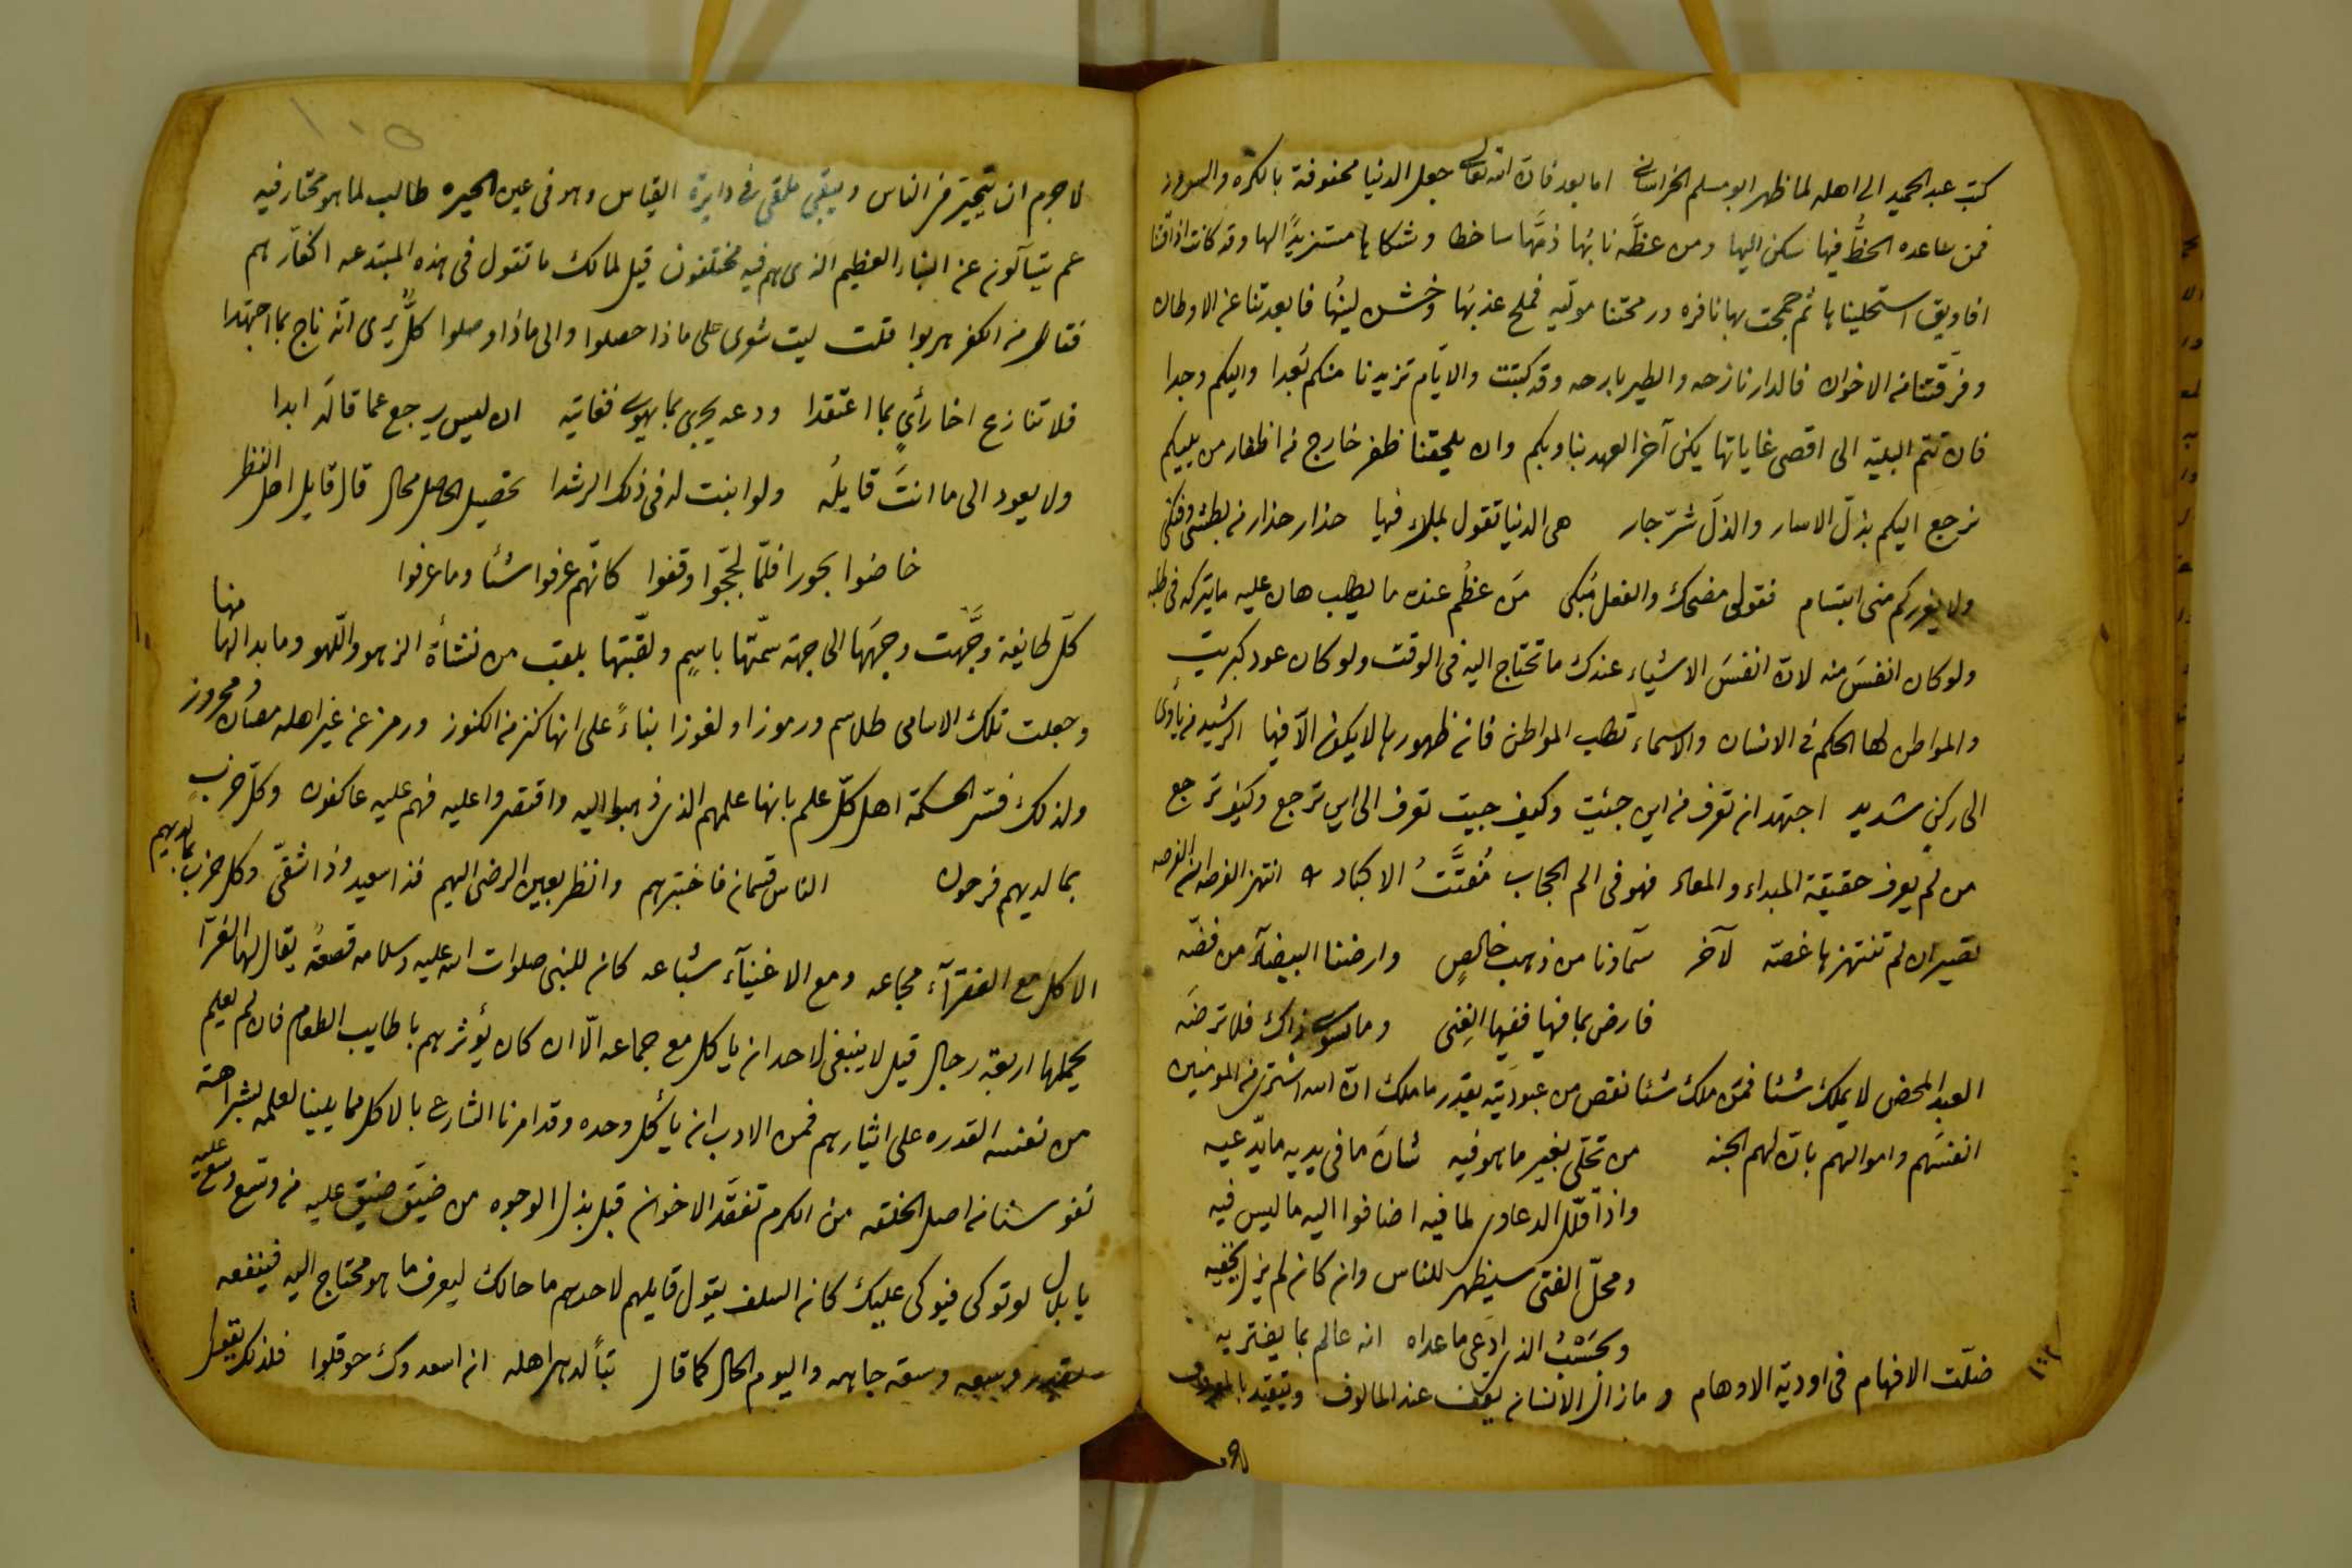 كتب عبد الحميد الى اهله لما ظهر ابو مسلم الخراسانى اما بعد فانّ الله تعالى جعل الدنيا محفوفة بالكره والسرور
فمن ساعده الحظّ فيها سكن اليها ومن عظّه نابها ذمّها ساخطا وشكاها مستزيدًا لها وقد كانت اذاقتنا
افاويق استحليناها ثم جمحت بها نافره ورمحتنا مولّيه فملح عذبها وخشن لينها فابعدتنا عن الاوطان
وفرّقتنا من الاخوان فالدار نازحه والطير بارحه وقد كتبت والايّام تزيدنا منكم بُعدا واليكم وجدا
فان تتم البليّه الى اقصى غاياتها يكن آخر العهد بنا وبكم وان يلحقنا ظفر خارج من اظفار من يليكم
نرجع اليكم بذلّ الاسار والذلّ شرّ جار هى الدنيا تقول بملاء فيها حذار حذار من بطشى وفتكى
ولا يغرركم منى ابتسام فقولى مضحك والفعل مُبكى مَن عظُم عنده ما يطلب هان عليه ما يتركه فى طلبه
ولو كان انفسَ منه لانّ انفسَ الاشياء عندك ما تحتاج اليه فى الوقت ولو كان عود كبريت
والمواطن لها الحكم فى الانسان والاسماء تطلب المواطن فان ظهورها لا يكون الّا فيها الرشيد من يأوى
الى ركن شديد اجتهد ان تعرف من اين جئت وكيف جيت تعرف الى اين ترجع وكيف ترجع
من لم يعرف حقيقة المبداء والمعاد فهو فى الم الحجاب مُفتَّتُ الاكباد انتهز الفرصه انّ الفرصه
تصير ان لم تنتهزها غصّه لآخر سمآؤنا من ذهب خالصٍ وارضنا البيضآء من فضّه
فارض بما فيها ففيها الغِنى وما سوى ذاك فلا ترضَه
العبد المحض لا يملك شئا فمن ملك شئا نقص من عبوديّته بقدر ما ملك انّ الله اشترى من المومنين
انفسَهم واموالهم بانّ لهم الجنه من تحلّى بغير ما هو فيه شانَ ما فى يديه ما يدّعيه
واذا قلّل الدعاوى لما فيه اضافوا اليه ما ليس فيه
ومحلّ الفتى سيظهر للناس وان كان لم يزل يخفيه
وبحَسْبُ الذى ادّعى ما عداه انه عالم بما يفتريه
ضلّت الافهام فى اودية الاوهام وما زال الانسان يقف عند المالوف ويتقيّد بالمعروف
١٠٥
لا جرم ان يتحيّر من الناس ويبقى ملقى فى دايرة القياس وهو فى عين الحيره طالب لما هو محتار فيه
عم يتسآءلون عن النباء العظيم الذى هم فيه مختلفون قيل لمالك ما تقول فى هذه المبتدعه اكفّار هم
فقال من الكفر هربوا قلت ليت شعرى على ماذا حصلوا والى ماذا وصلوا كلٌّ يُرى انّه ناج بما اجتهدا
فلا تنازع اخا رأىٍ بما اعتقدا ودعه يجرى بما يهوى فغايته ان ليس يرجع عما قاله ابدا
ولا يعود الى ما انتَ قايلُه ولو ابنت له فى ذلك الرشدا تحصيل الحاصل محال قال قايل اهل النظر
خاضوا بحورا فلمّا لجّجوا وقفوا كانّهم عرفوا شئا وما عرفوا
كلّ طايفة وجَّهت وجهَها الى جهة سمّتها باسمٍ ولقّبتها بلقب من نشأة الزهو واللهو وما بدا لها منها
وجعلت تلك الاسامى طلاسم ورموزا ولغوزا بناءً على انها كنز من الكنوز ورمز عن غير اهله مصان ومحروز
ولذلك فسّر الحكمة اهل كلّ علم بانها علمهم الذى ذهبوا اليه واقتصروا عليه فهم عليه عاكفون وكلّ حزبٍ
بما لديهم فرحون الناس قسمان فاختبرهم وانظر بعين الرضى اليهم فذا سعيد وذا شقىّ وكل حزب بما لديهم
الاكل مع الفقرآء مجاعه ومع الاغنيآء شباعه كان للنبى صلوات الله عليه وسلامه قصعةٌ يقال لها الغرّا
يحملها اربعة رجال قيل لا ينبغى لاحد ان ياكل مع جماعه الّا ان كان يؤثرهم باطايب الطعام فان لم يعلم
من نفسه القدره على ايثارهم فمن الادب ان يأكل وحده وقد امرنا الشارع بالاكل مما يلينا لعلمه بشراهة
نفوسنا من اصل الخلقه من الكرم تفقّد الاخوان قبل بذل الوجوه من ضيّق ضيق عليه من وسّع وسّع عليه
يا بلال لو توكى فيوكى عليك كان السلف يقول قايلهم لاحدهم ما حالك ليعرف ما هو محتاج اليه فينفعه
وسعه جاهه واليوم الحال كما قال تبّاً لدهر اهله ان اسعدوك حوقلوا فلذلك يقول